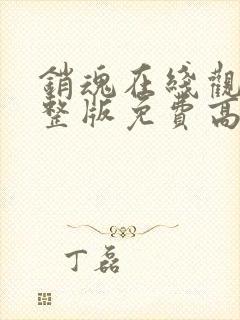 銷魂在綫觀
整版免費高
丁磊